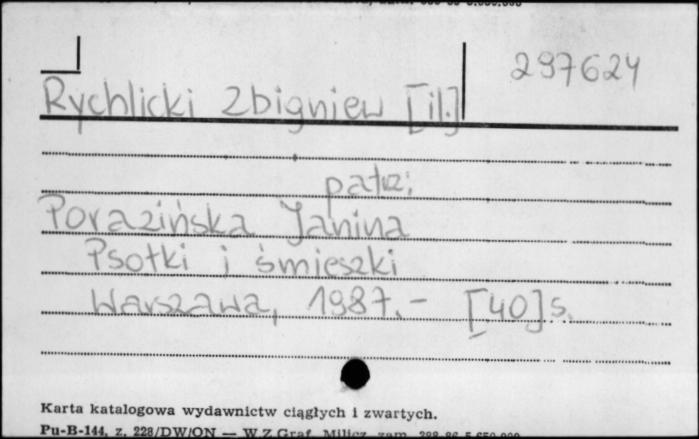 297624
Rychlicki Zbigniew [il.]
patrz:
Porazińska Janina
Psotki i śmieszki
Warszawa, 1987.- [40]s.
Karta katalogowa wydawnictw ciągłych i zwartych.
Pu-B-144, z. 228/DW/ON — W.Z.Graf. Milicz, zam.